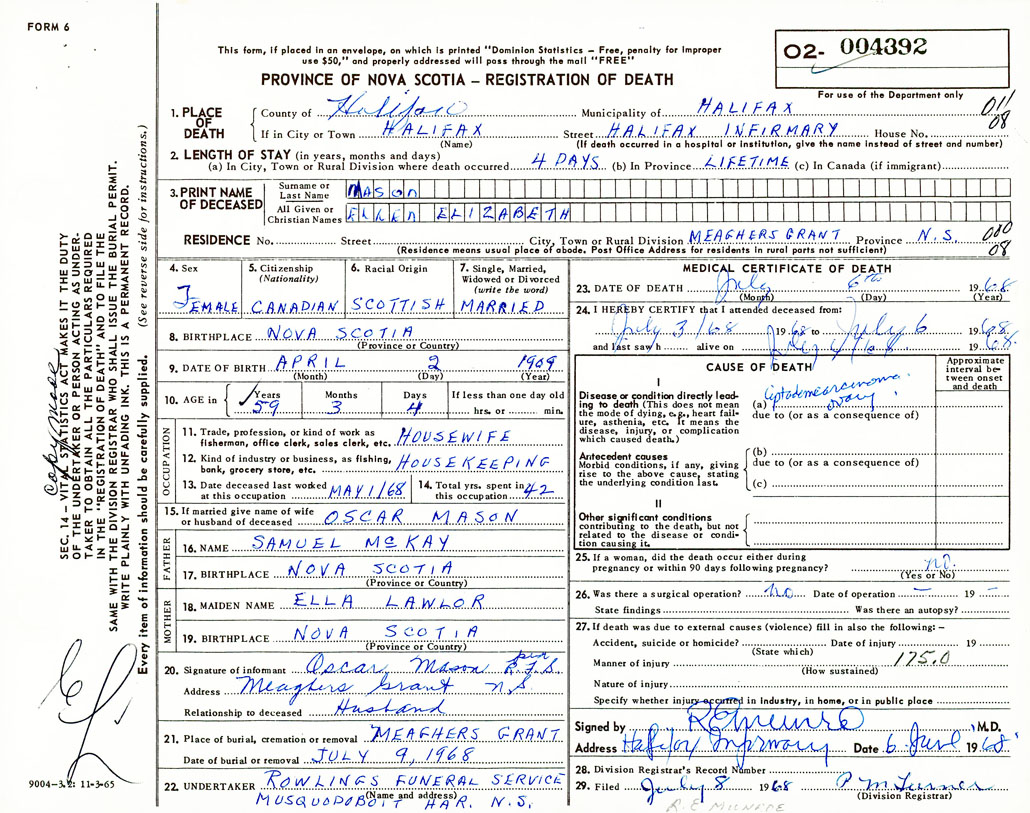 FORM 6
This form, if placed in an envelope, on which is printed "Dominion Statistics – Free, penalty for improper
use $50," and properly addressed will pass through the mail "FREE"
PROVINCE OF NOVA SCOTIA – REGISTRATION OF DEATH
O2- 004392
For use of the Department only
1. PLACE OF DEATH
County of Halifax Municipality of HALIFAX 011
If in City or Town HALIFAX Street HALIFAX INFIRMARY House No. 08
(Name) (If death occurred in a hospital or institution, give the name instead of street and number)
2. LENGTH OF STAY (in years, months and days)
(a) In City, Town or Rural Division where death occurred 4 DAYS (b) In Province LIFETIME (c) In Canada (if immigrant)
3. PRINT NAME OF DECEASED
Surname or Last Name MASON
All Given or Christian Names ELLEN ELIZABETH
RESIDENCE No. Street City, Town or Rural Division MEAGHERS GRANT Province N.S. 080
(Residence means usual place of abode. Post Office Address for residents in rural parts not sufficient) 08
4. Sex FEMALE
5. Citizenship (Nationality) CANADIAN
6. Racial Origin SCOTTISH
7. Single, Married, Widowed or Divorced (write the word) MARRIED
8. BIRTHPLACE NOVA SCOTIA
(Province or Country)
9. DATE OF BIRTH APRIL 2 1909
(Month) (Day) (Year)
10. AGE in Years Months Days If less than one day old
59 3 4 hrs. or min.
OCCUPATION
11. Trade, profession, or kind of work as
fisherman, office clerk, sales clerk, etc. HOUSEWIFE
12. Kind of industry or business, as fishing,
bank, grocery store, etc. HOUSEKEEPING
13. Date deceased last worked
at this occupation MAY 1/68
14. Total yrs. spent in
this occupation 42
15. If married give name of wife
or husband of deceased OSCAR MASON
FATHER
16. NAME SAMUEL McKAY
17. BIRTHPLACE NOVA SCOTIA
(Province or Country)
MOTHER
18. MAIDEN NAME ELLA LAWLOR
19. BIRTHPLACE NOVA SCOTIA
(Province or Country)
20. Signature of informant Oscar Mason per
Address Meaghers Grant N.S.
Relationship to deceased Husband
21. Place of burial, cremation or removal MEAGHERS GRANT
Date of burial or removal JULY 9, 1968
22. UNDERTAKER ROWLINGS FUNERAL SERVICE
(Name and address)
MUSQUODOBOIT HAR. N.S.
MEDICAL CERTIFICATE OF DEATH
23. DATE OF DEATH July 6th 1968
(Month) (Day) (Year)
24. I HEREBY CERTIFY that I attended deceased from:
July 3/68 1968 to July 6 1968
and last saw h alive on July 1968.
CAUSE OF DEATH
Approximate interval between onset and death
I
Disease or condition directly leading to death (This does not mean the mode of dying, e.g., heart failure, asthenia, etc. It means the disease, injury, or complication which caused death.)
(a) ovary
due to (or as a consequence of)
Antecedent causes
Morbid conditions, if any, giving rise to the above cause, stating the underlying condition last.
(b)
due to (or as a consequence of)
(c)
II
Other significant conditions
contributing to the death, but not related to the disease or condition causing it.
25. If a woman, did the death occur either during
pregnancy or within 90 days following pregnancy? no.
(Yes or No)
26. Was there a surgical operation? no Date of operation – 19 –
State findings Was there an autopsy?
27. If death was due to external causes (violence) fill in also the following: –
Accident, suicide or homicide? Date of injury 19
(State which)
Manner of injury 175.0
(How sustained)
Nature of injury
Specify whether injury occurred in industry, in home, or in public place
Signed by M.D.
Address Halifax Infirmary Date 6 1968
28. Division Registrar's Record Number
29. Filed July 8 1968 P M Turner
(Division Registrar)
SEC. 14 – VITAL STATISTICS ACT MAKES IT THE DUTY
OF THE UNDERTAKER OR PERSON ACTING AS UNDER-
TAKER TO OBTAIN ALL THE PARTICULARS REQUIRED
IN THE "REGISTRATION OF DEATH" AND TO FILE THE
SAME WITH THE DIVISION REGISTRAR WHO SHALL ISSUE THE BURIAL PERMIT.
WRITE PLAINLY WITH UNFADING INK. THIS IS A PERMANENT RECORD.
Every item of information should be carefully supplied. (See reverse side for instructions.)
9004-3.2: 11-3-65